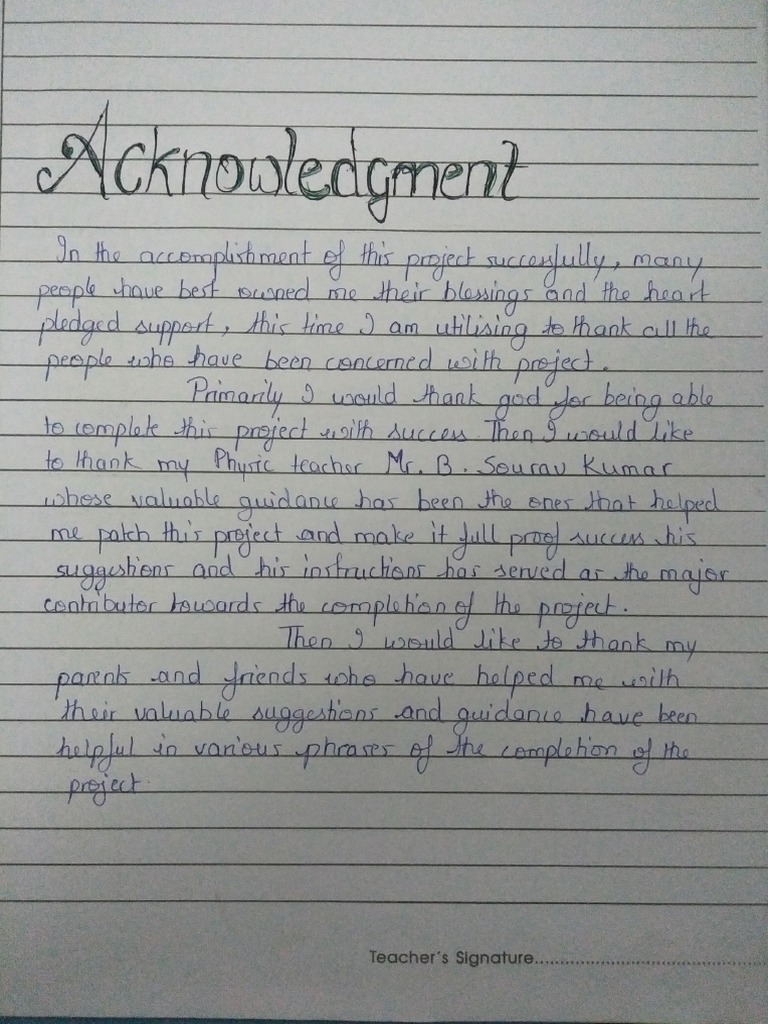 Acknowledgment
In the accomplishment of this project successfully, many
people have best owned me their blessings and the heart
pledged support, this time I am utilising to thank all the
people who have been concerned with project.
Primarily I would thank god for being able
to complete this project with success. Then I would like
to thank my Physic teacher Mr. B. Sourav Kumar
whose valuable guidance has been the ones that helped
me patch this project and make it full proof success his
suggestions and his instructions has served as the major
contributor towards the completion of the project.
Then I would like to thank my
parents and friends who have helped me with
their valuable suggestions and guidance have been
helpful in various phrases of the completion of the
project.
Teacher's Signature..........................................